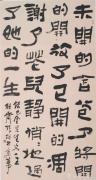 未開的含苞了將開
的開放了已開的凋
謝了花兒靜悄悄地過
了她的一生